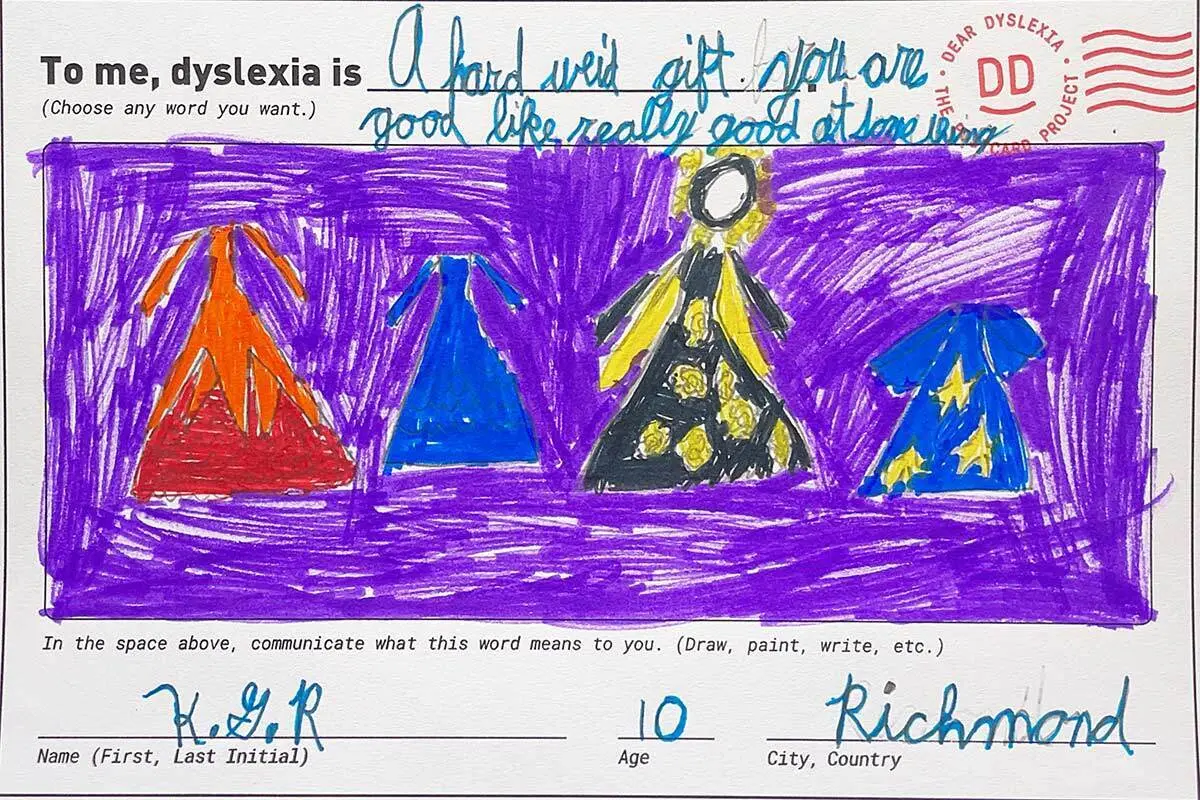 To me, dyslexia is A hard weid gift. you are
(Choose any word you want.)
good like really good at some
· DEAR DYSLEXIA · THE CARD PROJECT
DD
In the space above, communicate what this word means to you. (Draw, paint, write, etc.)
K.G.R 10 Richmond
Name (First, Last Initial) Age City, Country